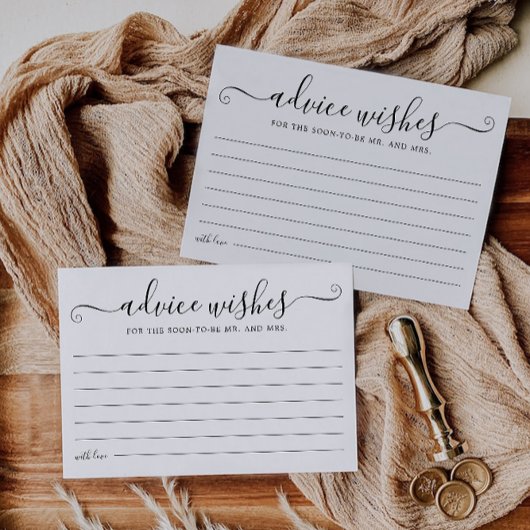 advice wishes
FOR THE SOON-TO-BE MR. AND MRS.
with love
advice wishes
FOR THE SOON-TO-BE MR. AND MRS.
with love